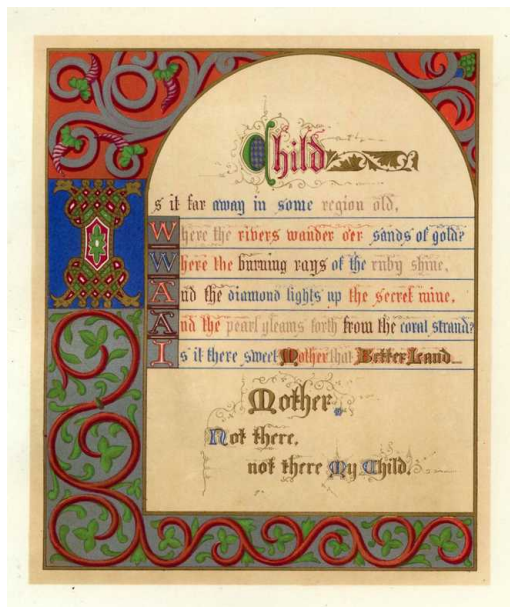 Child
Is it far away in some region old,
Where the rivers wander o'er sands of gold?
Where the burning rays of the ruby shine,
And the diamond lights up the secret mine,
And the pearl gleams forth from the coral strand?
Is it there sweet Mother that Better Land
Mother.
Not there,
not there My Child.